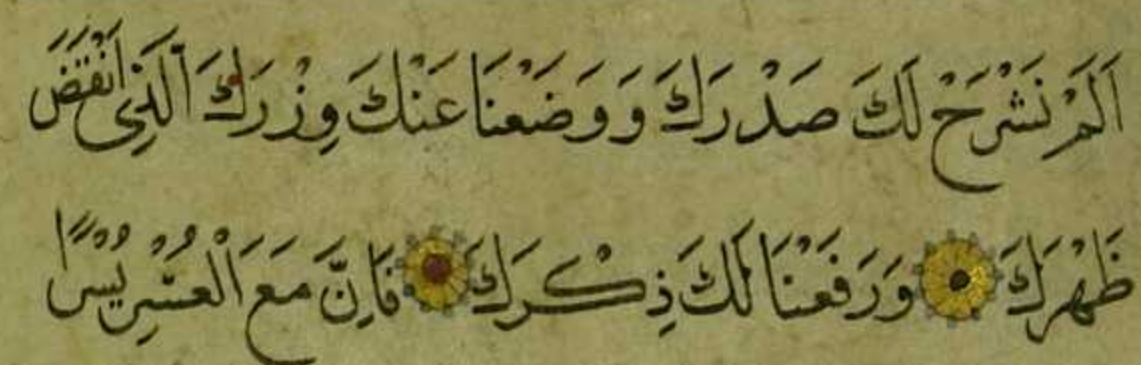 اَلَمْ نَشْرَحْ لَكَ صَدْرَكَ وَوَضَعْنَا عَنْكَ وِزْرَكَ اَلَّذِي اَنْقَضَ
ظَهْرَكَ وَرَفَعْنَا لَكَ ذِكْرَكَ فَاِنَّ مَعَ الْعُسْرِ يُسْرًا